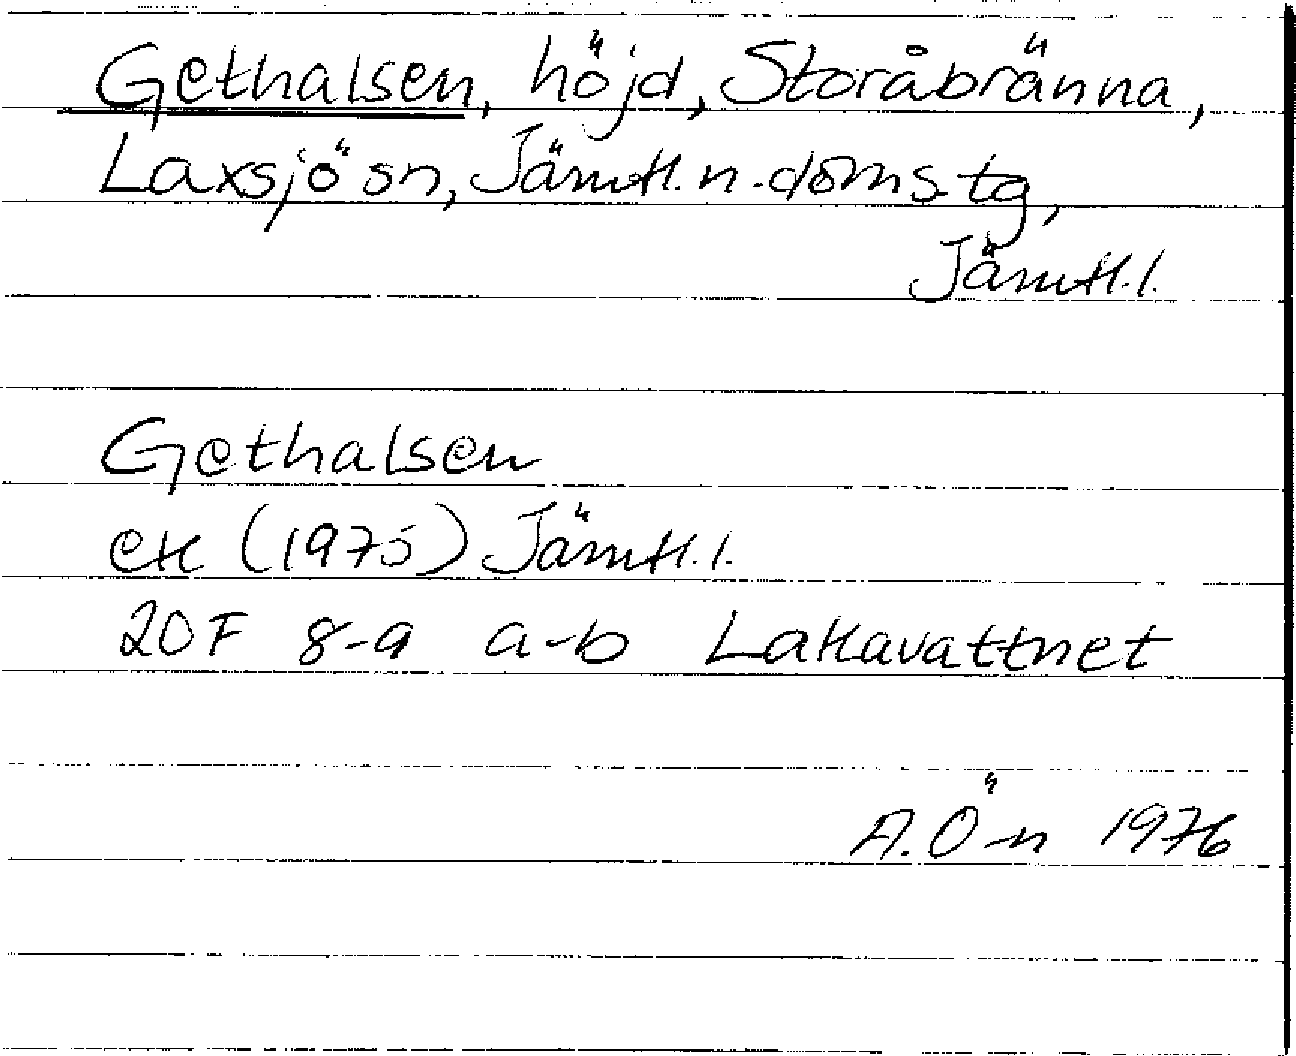 Gethalsen, höjd, Storåbränna,
Laxsjö sn, Jämtl. n. doms. tg,
Jämtl. l.
Gethalsen
ek (1975) Jämtl. l.
20F 8-9 a-b Lakavattnet
A. Ö-n 1976